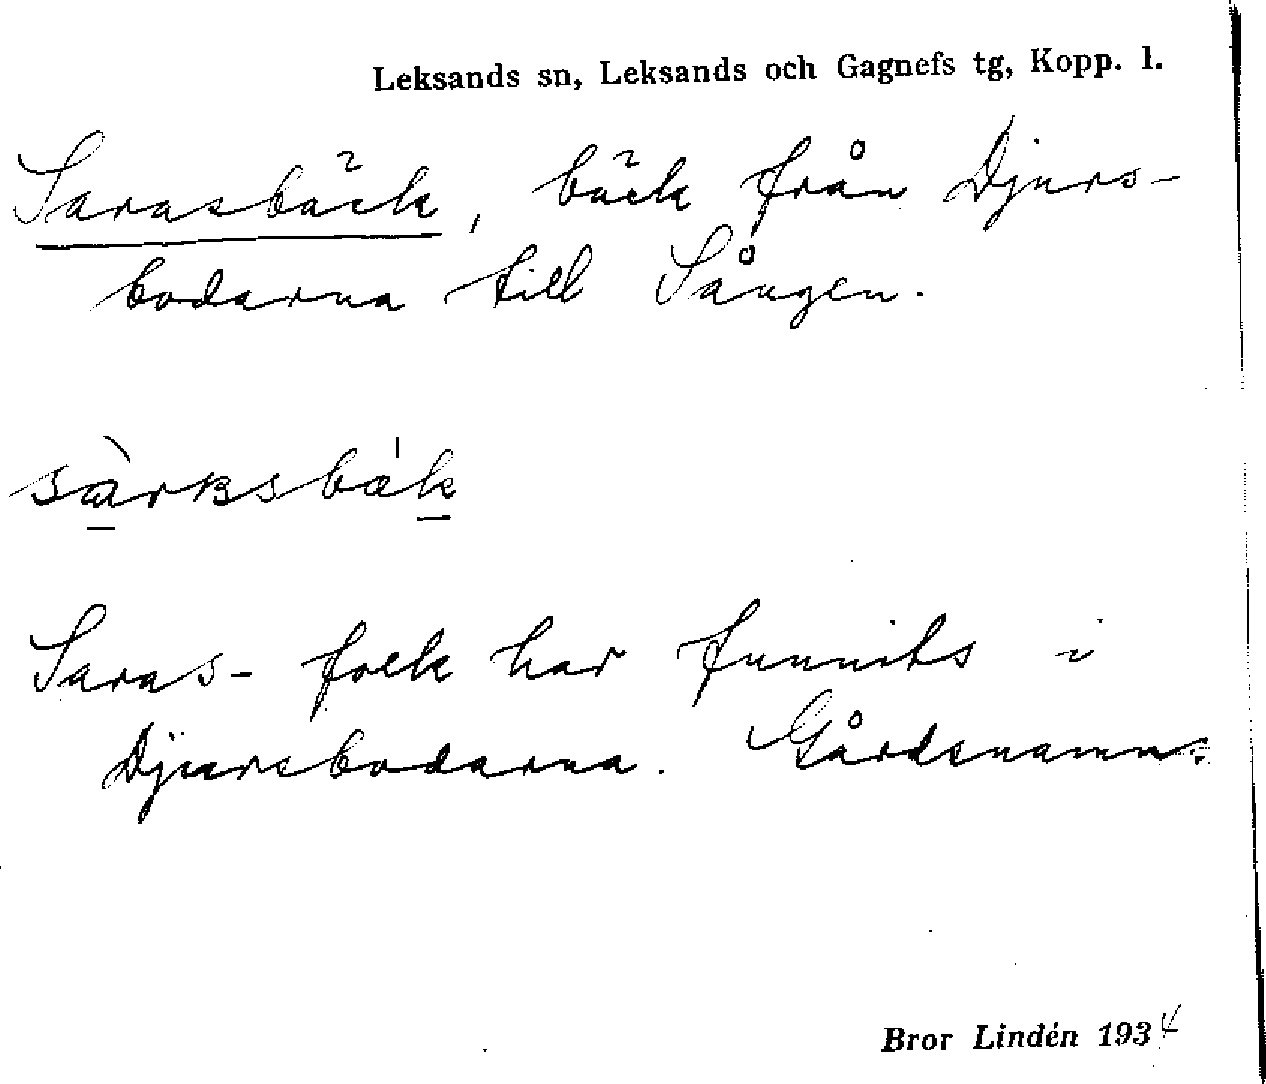 Leksands sn, Leksands och Gagnefs tg, Kopp. l.
Sarasbäck, bäck från Djurs-
bodarna till Sången.
Saras- folk har funnits i
Djursbodarna. Gårdsnamn.
Bror Lindén 1934